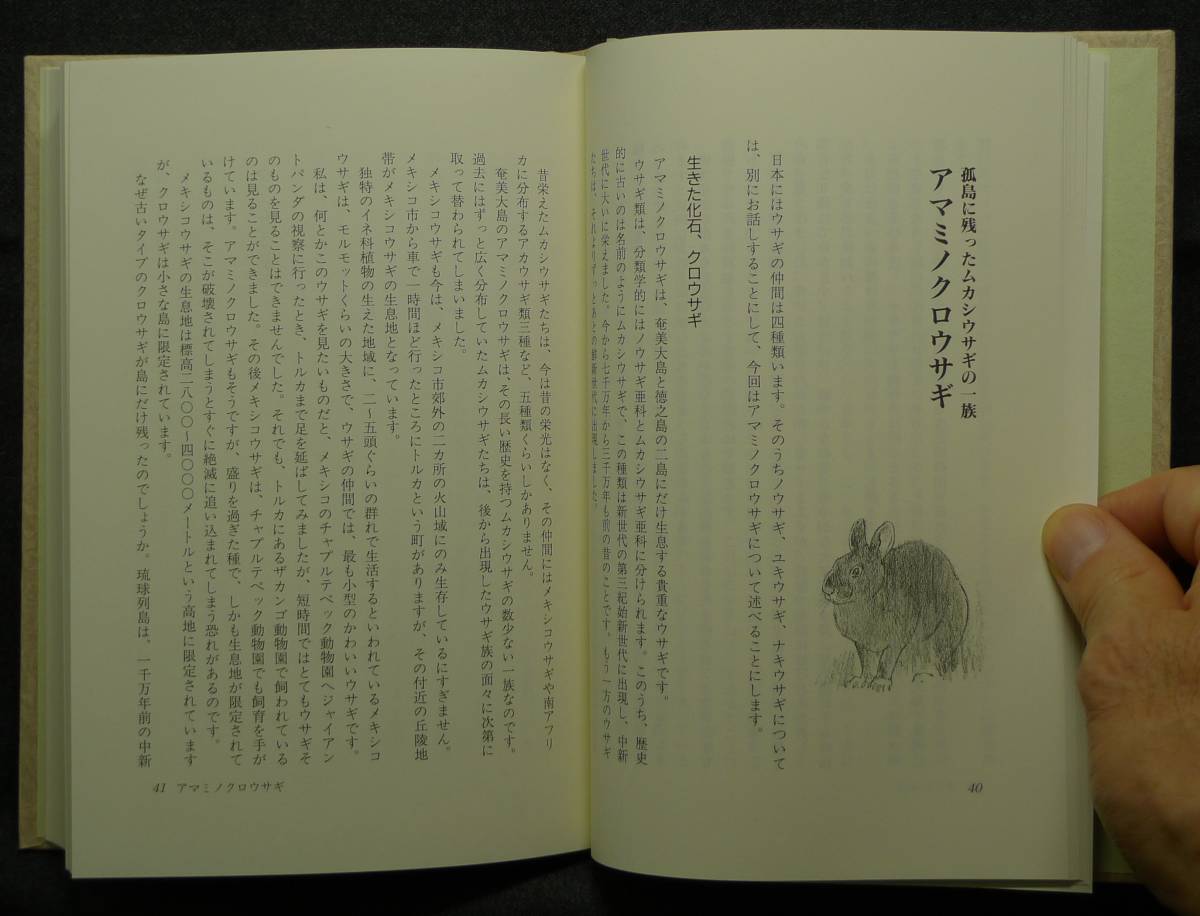 孤島に残ったムカシウサギの一族
アマミノクロウサギ
日本にはウサギの仲間は四種類います。そのうちノウサギ、ユキウサギ、ナキウサギについて
は、別にお話しすることにして、今回はアマミノクロウサギについて述べることにします。
生きた化石、クロウサギ
アマミノクロウサギは、奄美大島と徳之島の二島にだけ生息する貴重なウサギです。
ウサギ類は、分類学的にはノウサギ亜科とムカシウサギ亜科に分けられます。このうち、歴史
的に古いのは名前のようにムカシウサギで、この種類は新世代の第三紀始新世代に出現し、中新
世代に大いに栄えました。今から七千万年から三千万年も前の昔のことです。もう一方のウサギ
たちは、それよりずっとあとの鮮新世代に出現しました。
40
昔栄えたムカシウサギたちは、今は昔の栄光はなく、その仲間にはメキシコウサギや南アフリ
カに分布するアカウサギ類三種など、五種類くらいしかありません。
奄美大島のアマミノクロウサギは、その長い歴史を持つムカシウサギの数少ない一族なのです。
過去にはずっと広く分布していたムカシウサギたちは、後から出現したウサギ族の面々に次第に
取って替わられてしまいました。
メキシコウサギも今は、メキシコ市郊外の二カ所の火山域にのみ生存しているにすぎません。
メキシコ市から車で一時間ほど行ったところにトルカという町がありますが、その付近の丘陵地
帯がメキシコウサギの生息地となっています。
独特のイネ科植物の生えた地域に、二～五頭ぐらいの群れで生活するといわれているメキシコ
ウサギは、モルモットくらいの大きさで、ウサギの仲間では、最も小型のかわいいウサギです。
私は、何とかこのウサギを見たいものだと、メキシコのチャプルテペック動物園へジャイアン
トパンダの視察に行ったとき、トルカまで足を延ばしてみましたが、短時間ではとてもウサギそ
のものを見ることはできませんでした。それでも、トルカにあるザカンゴ動物園で飼われている
のは見ることができました。その後メキシコウサギは、チャプルテペック動物園でも飼育を手が
けています。アマミノクロウサギもそうですが、盛りを過ぎた種で、しかも生息地が限定されて
いるものは、そこが破壊されてしまうとすぐに絶滅に追い込まれてしまう恐れがあるのです。
メキシコウサギの生息地は標高二八〇〇～四〇〇〇メートルという高地に限定されています
が、クロウサギは小さな島に限定されています。
なぜ古いタイプのクロウサギが島にだけ残ったのでしょうか。琉球列島は、一千万年前の中新
41 アマミノクロウサギ